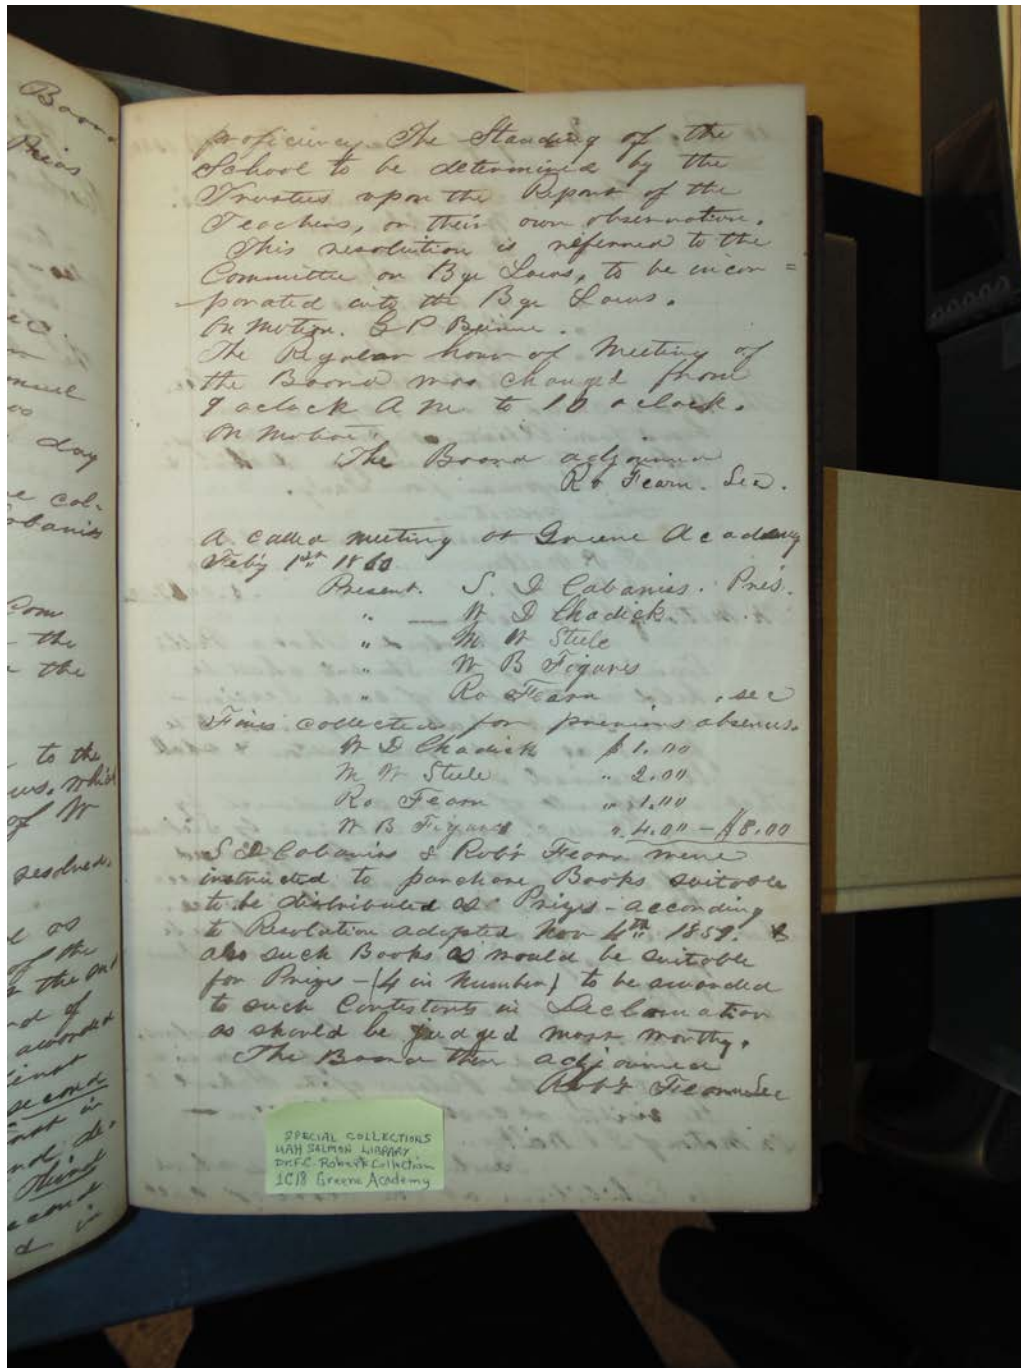 Board
proficiency The Standing of the
School to be determined by the
Trustees upon the Report of the
Teachers, or their own observation.
This resolution is referred to the
Committee on Bye Laws, to be incor =
-porated into the Bye Laws.
On Motion. G P Beirne.
The Regular hour of Meeting of
the Board was changed from
9 oclock A M. to 10 oclock.
On Motion
The Board adjourned
Ro Fearn. Sec.
A called meeting at Greene Academy
Feby 1st 1860
Present. S. D Cabaniss. Pres.
" W D Chadick.
" M. W Steele
" W B Figures
" Ro Fearn . sec
Fines collected for previous absences.
W D Chadick $1.00
M W Steele " 2.00
Ro Fearn " 1.00
W B Figures ". 4.00 - $8.00
S D Cabaniss & Robt Fearn were
instructed to purchase Books suitable
to be distributed as Prizes - according
to Resolution adopted Nov 4th 1859. &
also such Books as would be suitable
for Prizes - (4 in Number) to be awarded
to such Contestants in Declamation
as should be judged most worthy.
The Board then adjourned
Robt Fearn Sec
SPECIAL COLLECTIONS
UAH SALMON LIBRARY
Dr. F.C. Roberts Collection
1C18 Greene Academy
day
col-
Cabaniss
Com
the
the
to the
which
of W
resolved.
as
of the
awarded
second
third
second
in